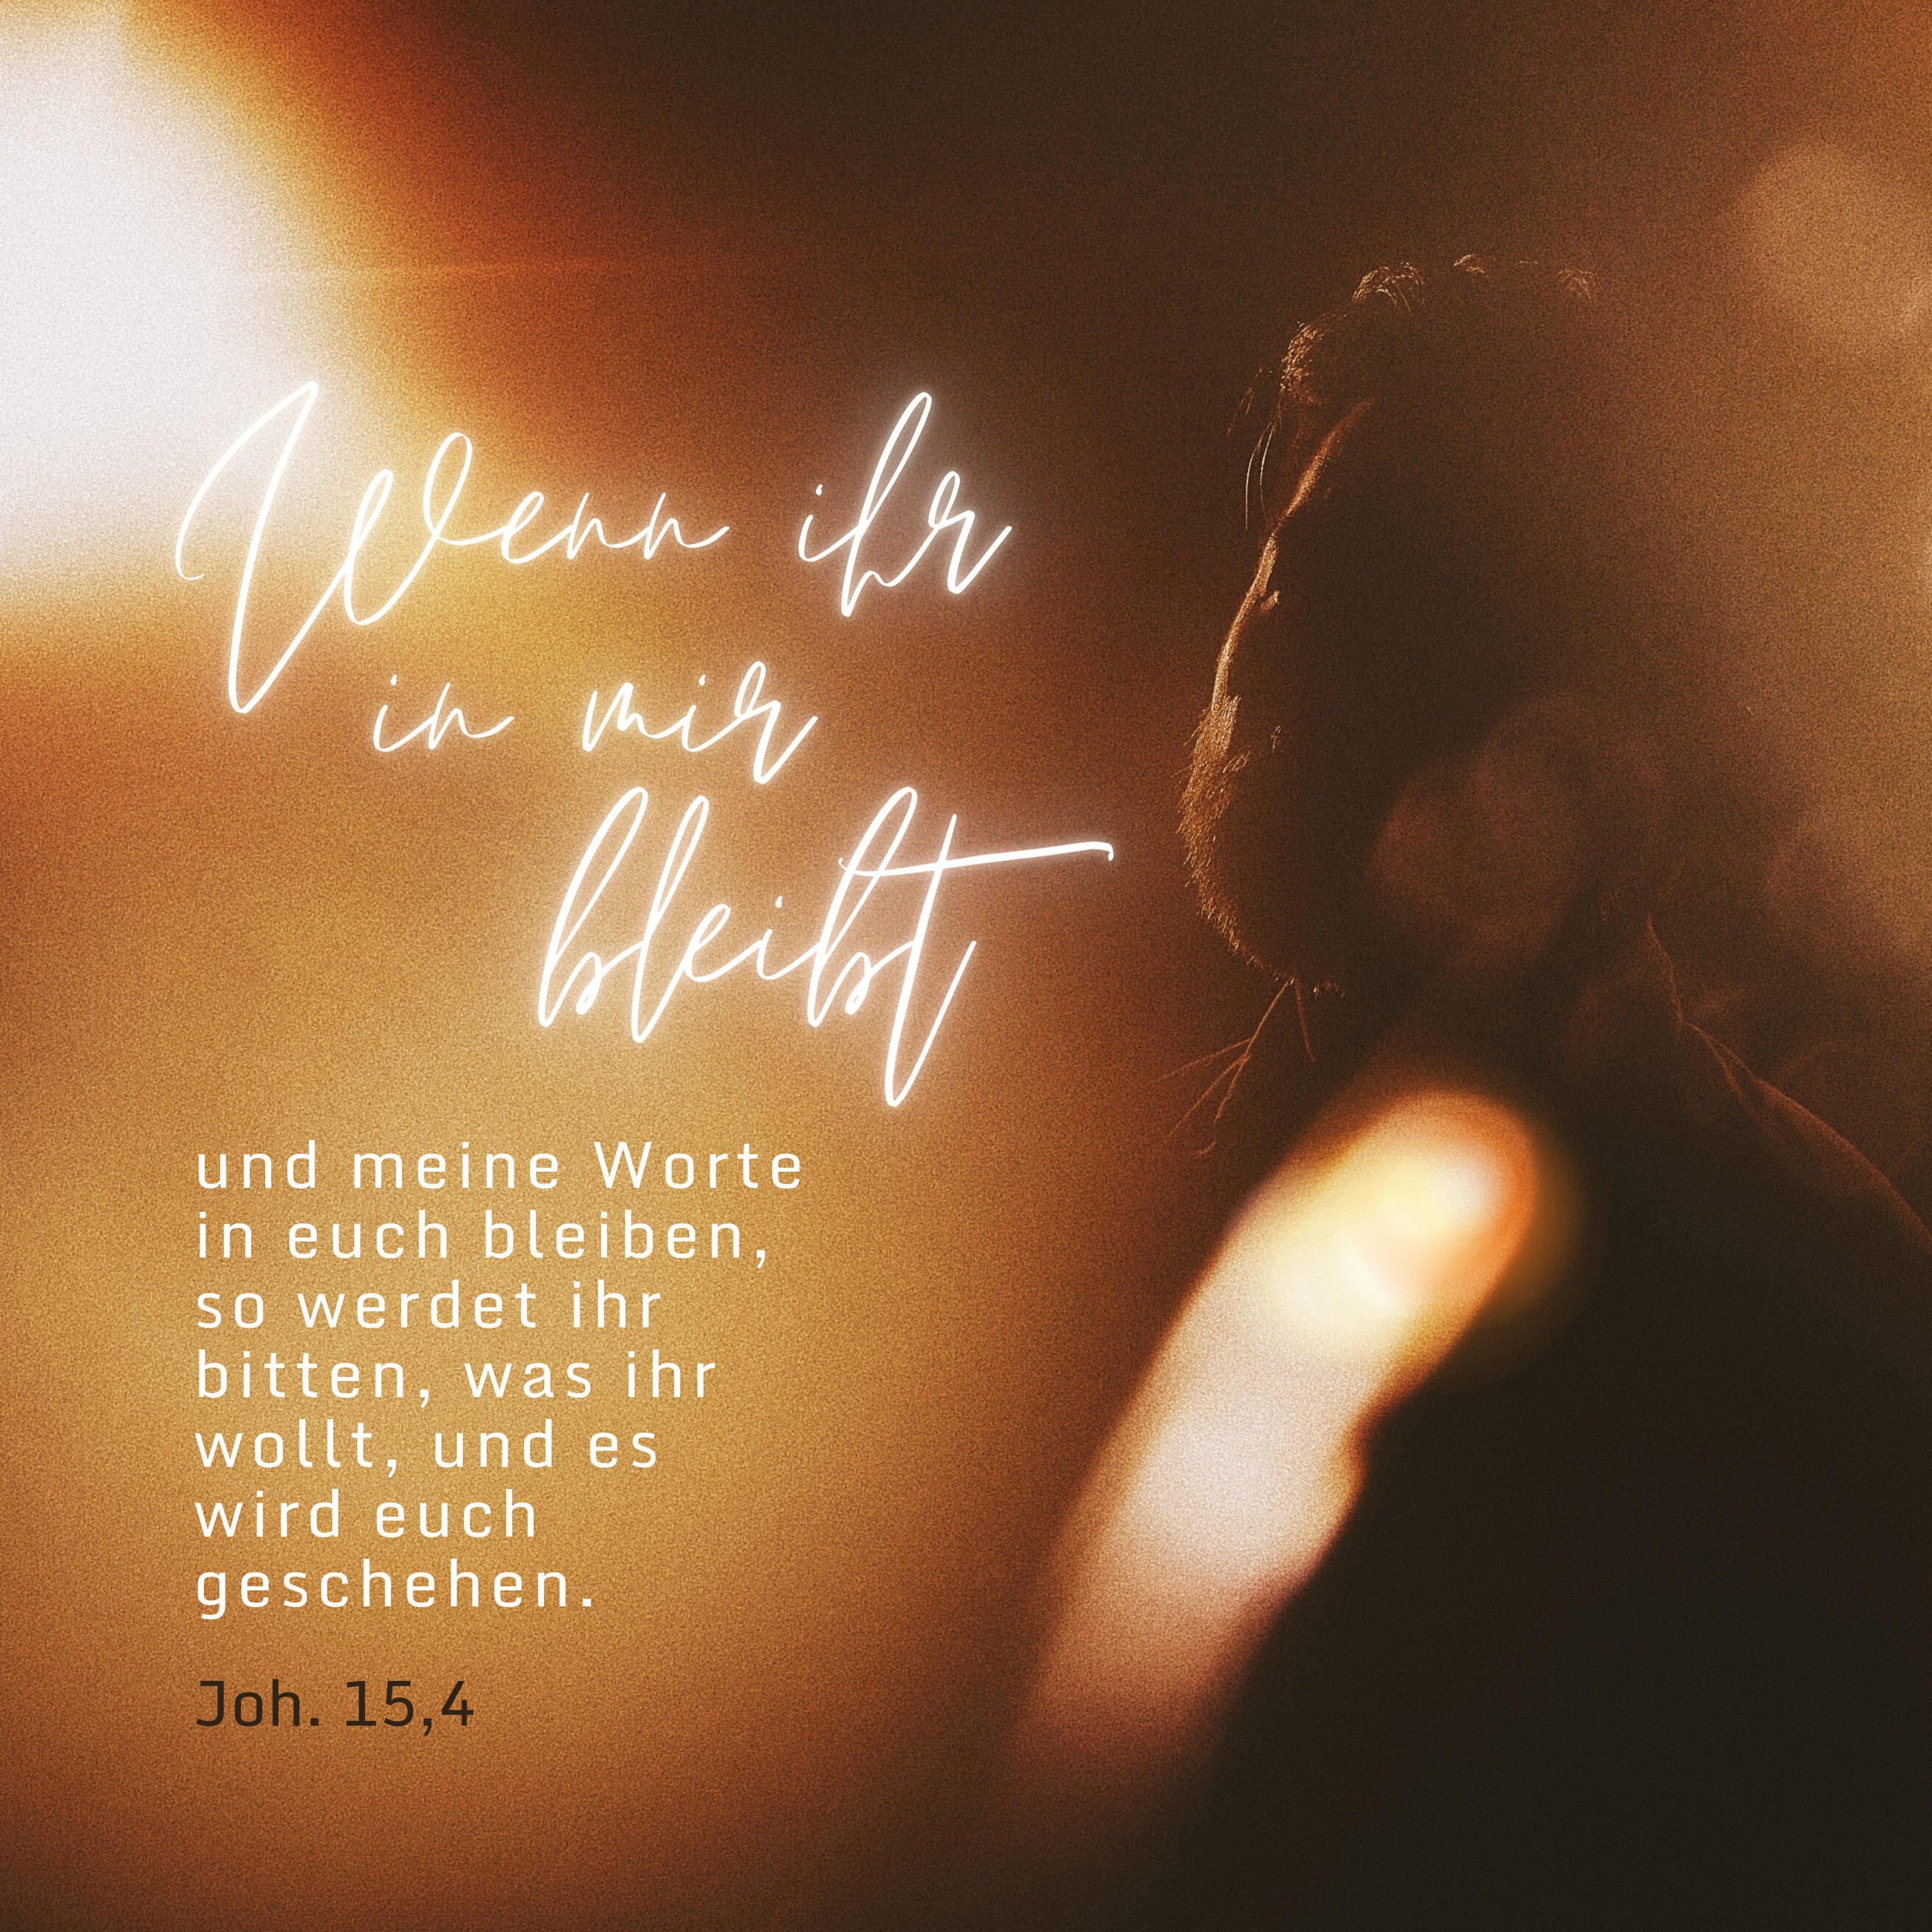 Wenn ihr
in mir
bleibt
und meine Worte
in euch bleiben,
so werdet ihr
bitten, was ihr
wollt, und es
wird euch
geschehen.
Joh. 15,4